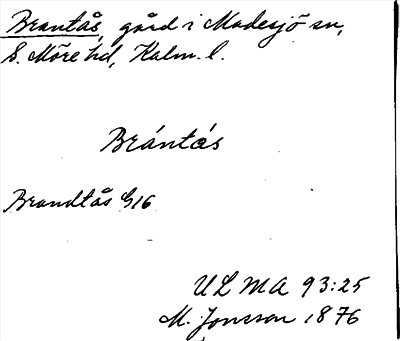 Brantås, gård i Madesjö sn,
S. Möre hd, Kalm. l.
Brántás
Brandtås G16
ULMA 93:25
M. Jonsson 1876